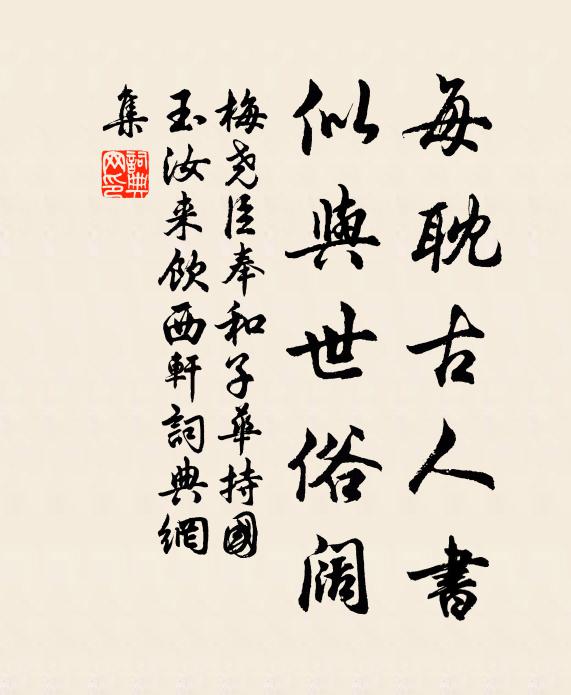 每耽古人書
似與世俗阔
梅尧臣奉和子華持國
玉汝来飲西軒詞典網
集
詞典网印